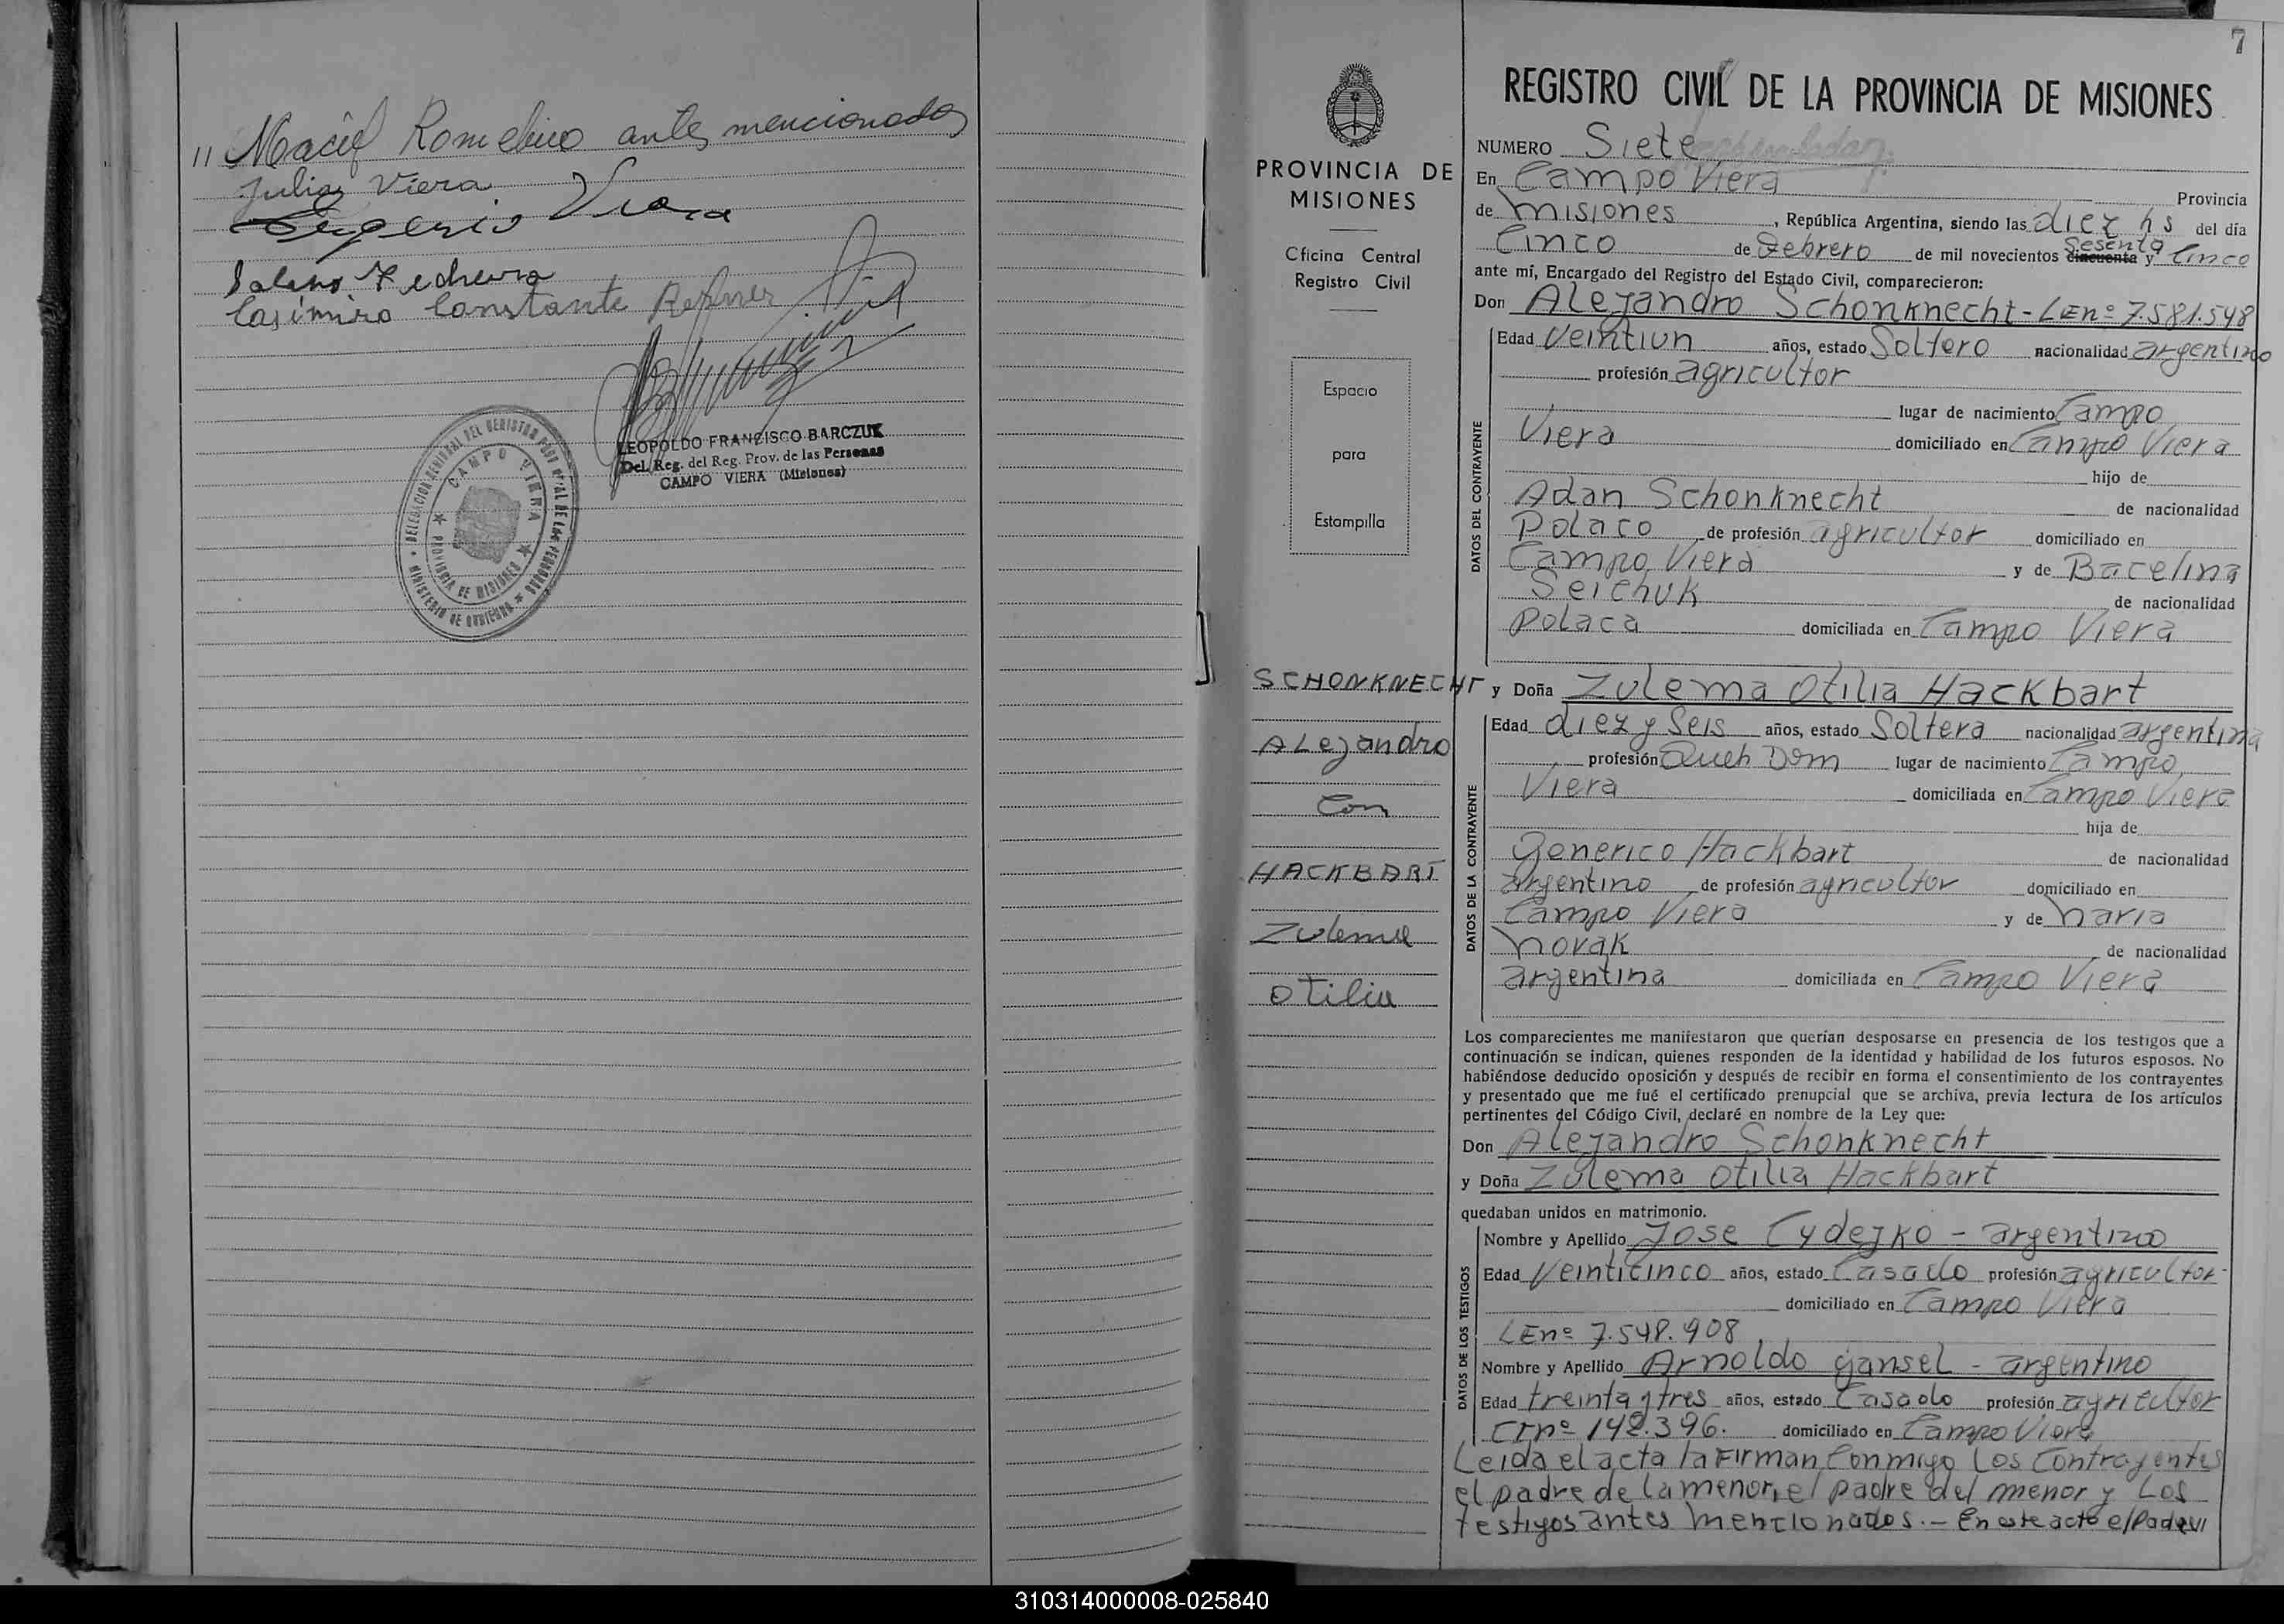 " Maciel Romelino antes mencionados
Julia Viera
Viera
Casimiro Constante
LEOPOLDO FRANCISCO BARCZUK
Del. Reg. del Reg. Prov. de las Personas
CAMPO VIERA (Misiones)
CAMPO VIERA
PROVINCIA DE MISIONES
MINISTERIO DE GOBIERNO
7
REGISTRO CIVIL DE LA PROVINCIA DE MISIONES
PROVINCIA DE
MISIONES
Oficina Central
Registro Civil
Espacio
para
Estampilla
SCHONKNECHT
ALejandro
Con
HACKBART
Zulema
Otilia
NUMERO Siete
En Campo Viera Provincia
de Misiones, República Argentina, siendo las diez hs del día
Cinco de Febrero de mil novecientos cincuenta Sesenta y Cinco
ante mí, Encargado del Registro del Estado Civil, comparecieron:
Don Alejandro Schonknecht - LEnº 7.581.548
Edad Veintiun años, estado Soltero nacionalidad argentino
profesión agricultor
lugar de nacimiento Campo
Viera domiciliado en Campo Viera
hijo de
Adan Schonknecht de nacionalidad
Polaco de profesión agricultor domiciliado en
Campo Viera y de Bacelina
Seichuk de nacionalidad
Polaca domiciliada en Campo Viera
DATOS DEL CONTRAYENTE
y Doña Zulema Otilia Hackbart
Edad diez y Seis años, estado Soltera nacionalidad argentina
profesión Queh Dom lugar de nacimiento Campo
Viera domiciliada en Campo Viera
hija de
Generico Hackbart de nacionalidad
argentino de profesión agricultor domiciliado en
Campo Viera y de Maria
Novak de nacionalidad
argentina domiciliada en Campo Viera
DATOS DE LA CONTRAYENTE
Los comparecientes me manifestaron que querían desposarse en presencia de los testigos que a
continuación se indican, quienes responden de la identidad y habilidad de los futuros esposos. No
habiéndose deducido oposición y después de recibir en forma el consentimiento de los contrayentes
y presentado que me fué el certificado prenupcial que se archiva, previa lectura de los artículos
pertinentes del Código Civil, declaré en nombre de la Ley que:
Don Alejandro Schonknecht
y Doña Zulema Otilia Hackbart
quedaban unidos en matrimonio.
Nombre y Apellido Jose Cydejko - argentino
Edad Veinticinco años, estado Casado profesión agricultor
domiciliado en Campo Viera
LEnº 7.548.908
Nombre y Apellido Arnoldo Gansel - argentino
Edad treinta y tres años, estado Casado profesión agricultor
CInº 142.396. domiciliado en Campo Viera
DATOS DE LOS TESTIGOS
Leida el acta la Firman Conmigo Los Contrayentes
el padre de la menor, el padre del menor y Los
testigos antes mencionados.- En este acto el
310314000008-025840